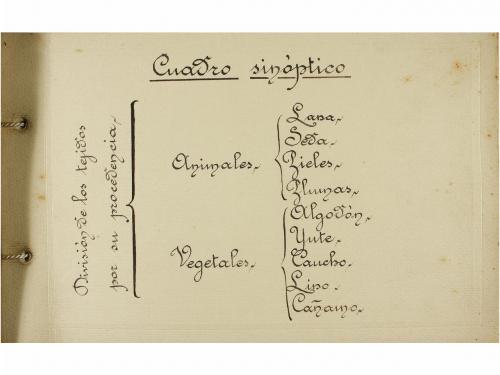 Cuadro sinóptico
División de los tejidos
por su procedencia.
Animales.
Lana.
Seda.
Pieles.
Plumas.
Vegetales.
Algodón.
Yute.
Caucho.
Lino.
Cáñamo.